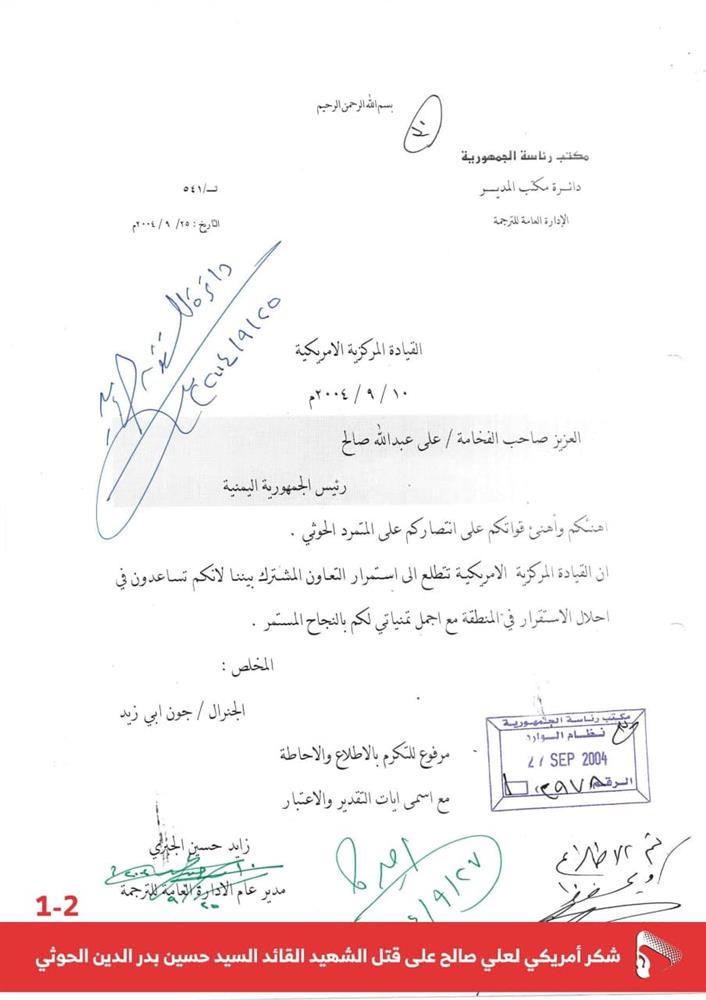 بسم الله الرحمن الرحيم
مكتب رئاسة الجمهورية
دائرة مكتب المدير
الإدارة العامة للترجمة
تـــ/٥٤١
التاريخ : ٢٥/ ٩ / ٢٠٠٤م
دائرة
٢٠٠٤/٩/٢٥
القيادة المركزية الامريكية
١٠ / ٩ / ٢٠٠٤م
العزيز صاحب الفخامة / على عبدالله صالح
رئيس الجمهورية اليمنية
اهنئكم وأهنئ قواتكم على انتصاركم على المتمرد الحوثي .
ان القيادة المركزية الامريكية تتطلع الى استمرار التعاون المشترك بيننا لانكم تساعدون في
احلال الاستقرار في المنطقة مع اجمل تمنياتي لكم بالنجاح المستمر .
المخلص :
الجنرال / جون ابي زيد
مكتب رئاسة الجمهورية
نظام الوارد
27 SEP 2004
الرقم
مرفوع للتكرم بالاطلاع والاحاطة
مع اسمى ايات التقدير والاعتبار
زايد حسين الجبري
مدير عام الادارة العامة للترجمة
تم الاطلاع
ويحفظ
٩/٢٧
1-2
شكر أمريكي لعلي صالح على قتل الشهيد القائد السيد حسين بدر الدين الحوثي